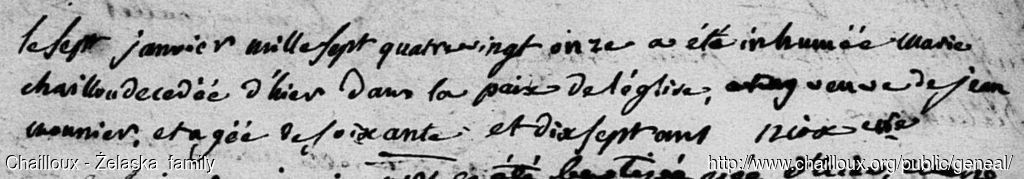 le sept janvier mille sept quatrevingt onze a été inhumée marie
chaillou decedée d'hier dans la paix de l'église, veuve de jean
mounier, et agée de soixante et dix sept ans
Chailloux - Żelaska family http://www.chailloux.org/public/geneal/
été baptisée